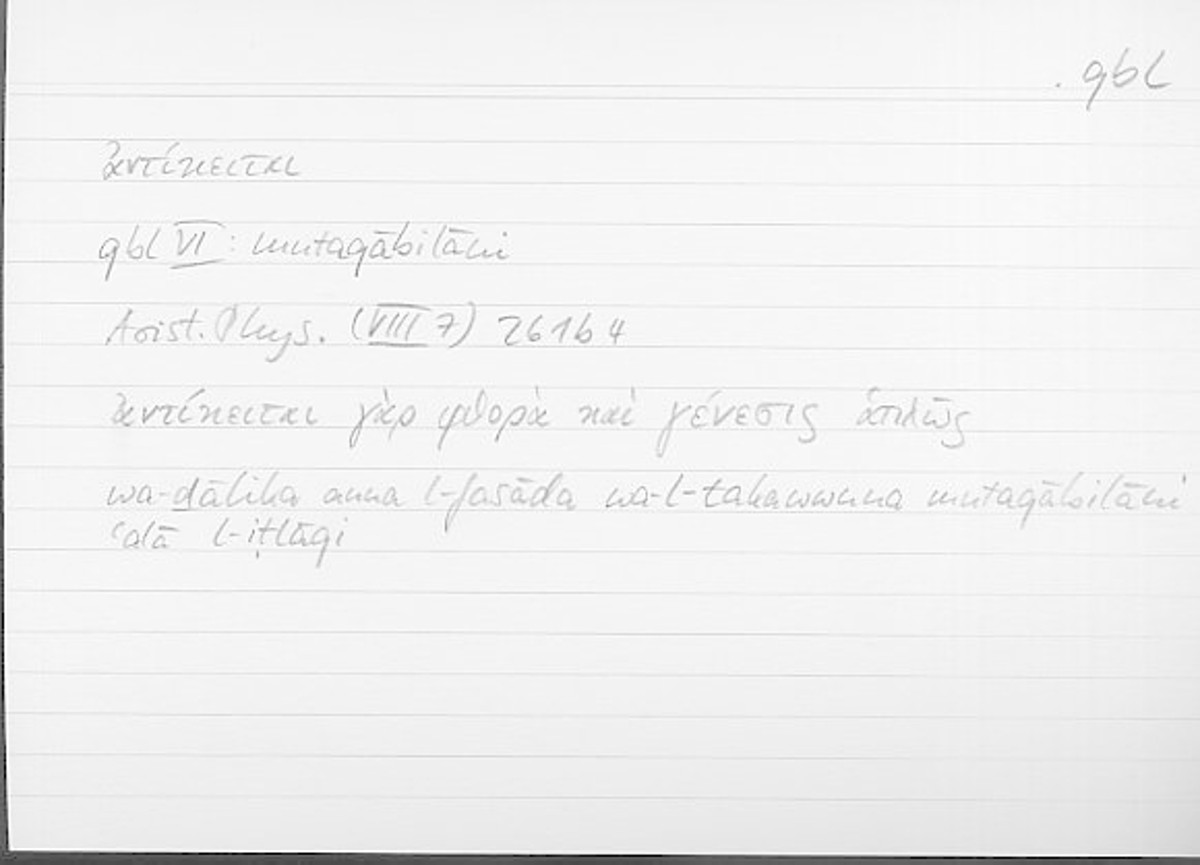 . qbl
ἀντίκειται
qbl VI : mutaqābilāni
Arist. Phys. (VIII 7) 261b4
ἀντίκειται γὰρ φθορὰ καὶ γένεσις ἁπλῶς
wa-ḏālika anna l-fasāda wa-l-takawwuna mutaqābilāni
ʿalā l-iṭlāqi